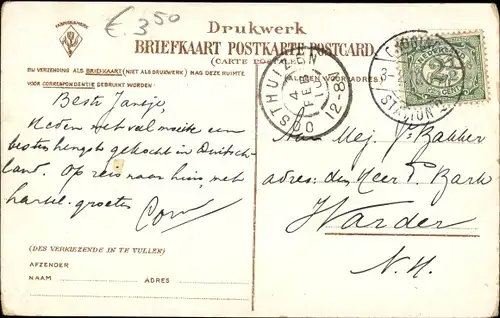 FABRIEKSMERK
€ 3 50
Drukwerk
BRIEFKAART POSTKARTE POSTCARD
(CARTE POSTALE)
BIJ VERZENDING ALS BRIEFKAART (NIET ALS DRUKWERK) MAG DEZE RUIMTE
VOOR CORRESPONDENTIE GEBRUIKT WORDEN
(ALLEEN VOOR ADRES)
OOSTHUIZEN
4 FEB
12-8
STATION
2½
Beste Jansje,
Heden met veel moeite een
besten hengst gekocht in Duitsch-
land. Op reis naar huis, met
hartel. groeten
Cor
Mej. Bakker
adres: den Heer P. Bark
Warder
N.H.
(DES VERKIEZENDE IN TE VULLEN)
AFZENDER
NAAM ADRES